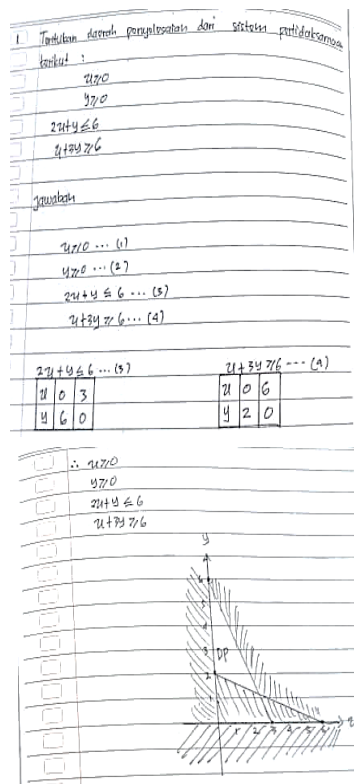 1. Tentukan daerah penyelesaian dari sistem pertidaksamaan
berikut :
x ≥ 0
y ≥ 0
2x + y ≤ 6
x + 3y ≥ 6
Jawaban
x ≥ 0 ... (1)
y ≥ 0 ... (2)
2x + y ≤ 6 ... (3)
x + 3y ≥ 6 ... (4)
2x + y ≤ 6 ... (3) x + 3y ≥ 6 ... (4)
x 0 3 x 0 6
y 6 0 y 2 0
∴ x ≥ 0
y ≥ 0
2x + y ≤ 6
x + 3y ≥ 6
y
6
5
4
3
DP
2
1
1 2 3 4 5 6 x